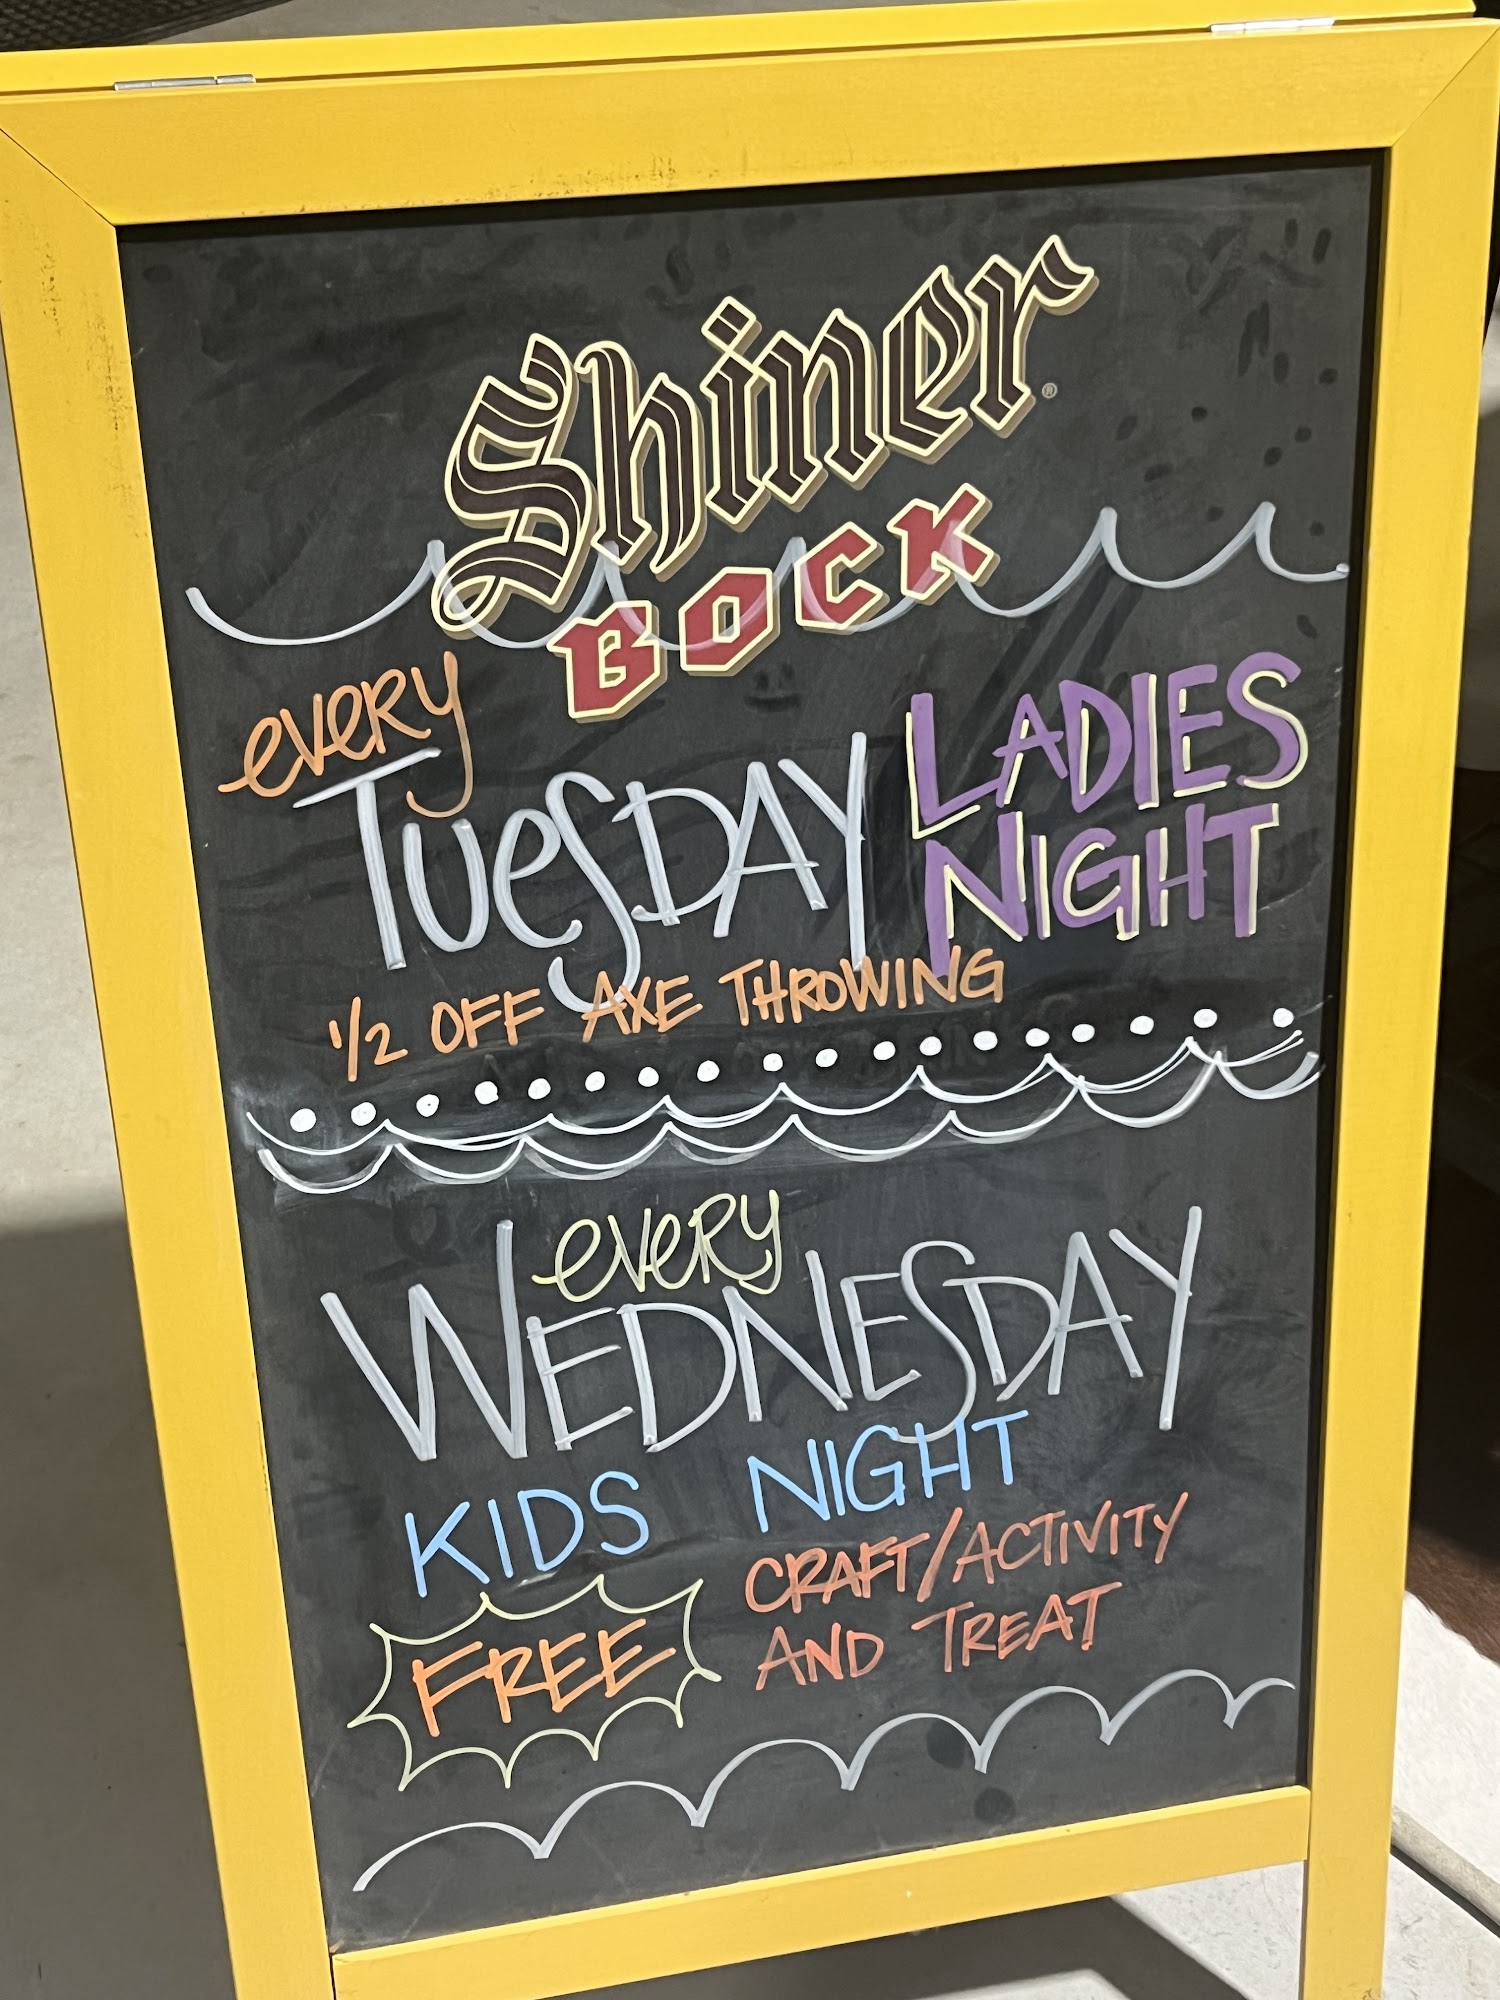 Shiner®
BOCK
every
TUesDAY
LADIES
NIGHT
1/2 OFF AXE THROWING
every
WEDNESDAY
KIDS NIGHT
FREE
CRAFT/ACTIVITY
AND TREAT